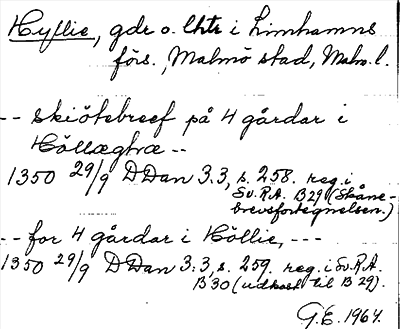 Hyllie, gdr o. lhtr i Limhamns
förs., Malmö stad, Malm. l.
-- skiötebreef på 4 gårdar i
Höllæghræ --
1350 29/9 DDan 3:3, s. 258. reg. i
Sv. R.A. B29 (Skåne-
brevsfortegnelsen.)
-- for 4 gårdar i Höllie, ---
1350 29/9 DDan 3:3, s. 259. reg. i Sv. R.A.
B30 (udkast til B 29).
G.E. 1964.